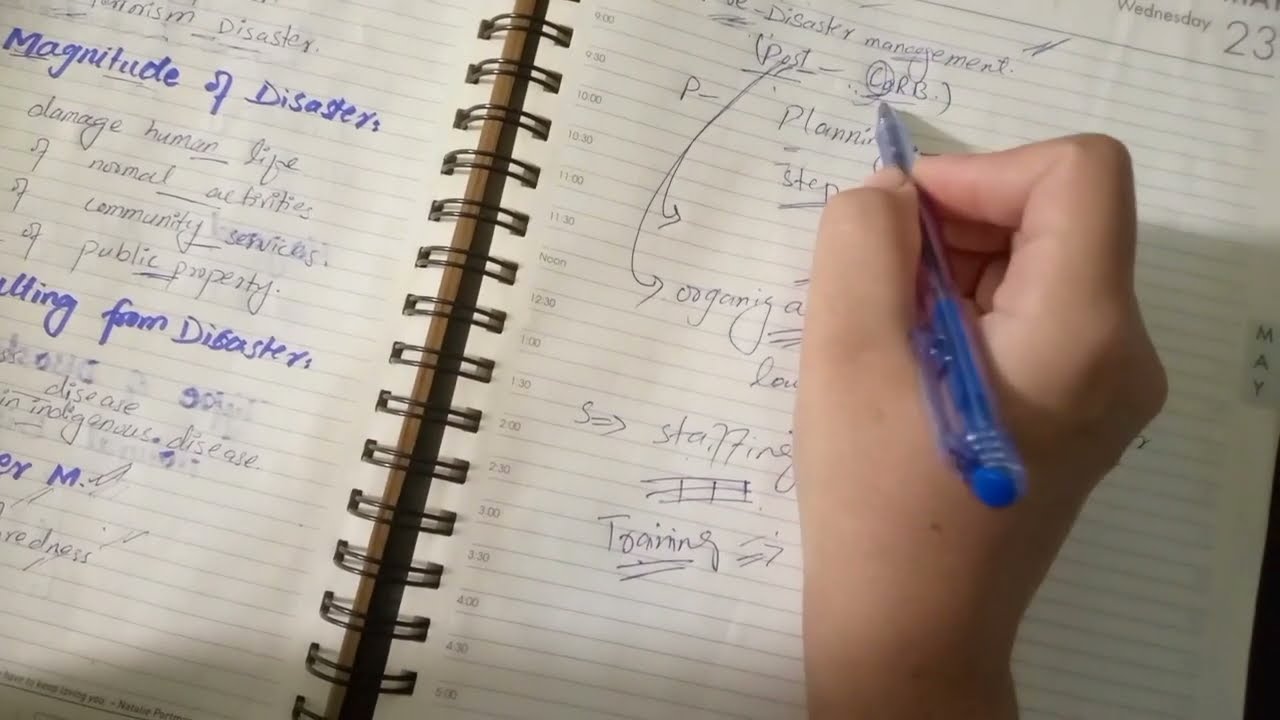 Terrorism Disaster.
Magnitude of Disaster:
damage human life
of normal activities
of community services.
of public property.
ulting from Disaster:
disease
in indigenous disease.
er M.
redness
have to keep loving you. - Natalie Portm
Wednesday 23
MAY
9:00
9:30
10:00
10:30
11:00
11:30
Noon
12:30
1:00
1:30
2:00
2:30
3:00
3:30
4:00
4:30
5:00
e-Disaster management.
(Post - CORB.)
P-
Planni
Step
organiza
S=> staffing
Training =>